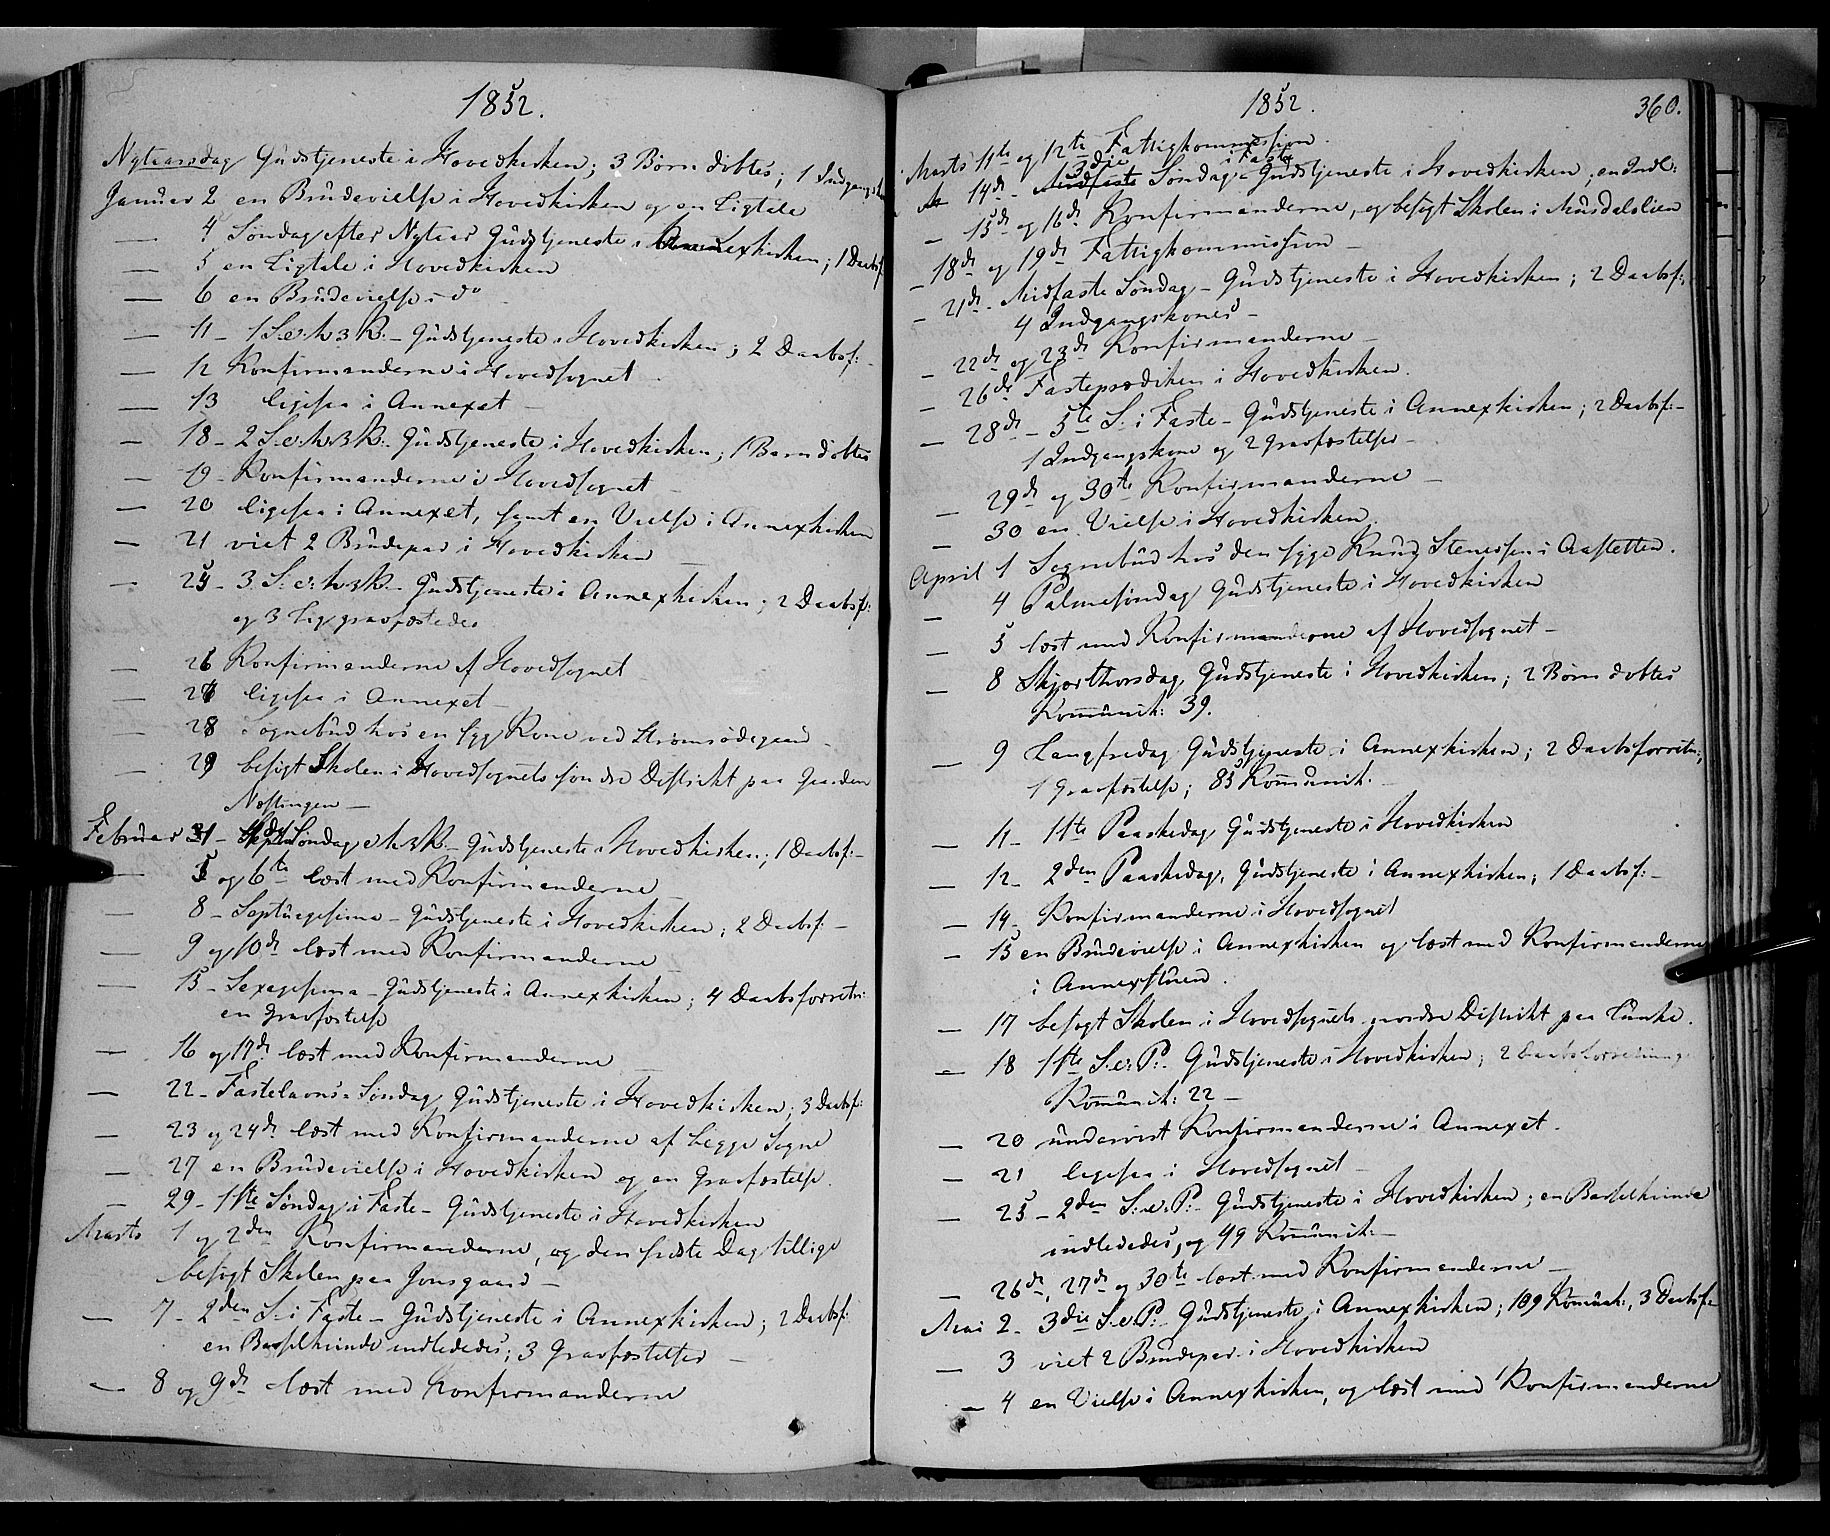 1852.
Nytaarsdag Gudstjeneste i Hovedkirken; 3 Børn døbtes; 1 Indgangsk
Januar 2 en Brudevielse i Hovedkirken og en Ligtale
— 4 Søndag efter Nytaar Gudstjeneste i Annexkirken; 1 Daabsf:
— 5 en Ligtale i Hovedkirken
— 6 en Brudevielse i do
— 11 – 1 S. e. h. 3 K. – Gudstjeneste i Hovedkirken; 2 Daabsf: –
— 12 Konfirmanderne i Hovedsognet –
— 13 ligesaa i Annexet –
— 18 – 2 S. e. h. 3 K. – Gudstjeneste i Hovedkirken; 1 Barn døbtes
— 19 – Konfirmanderne i Hovedsognet –
— 20 ligesaa i Annexet, samt en Vielse i Annexkirken
— 21 viet 2 Brudepar i Hovedkirken –
— 25 – 3 S. e. h. 3 K. – Gudstjeneste i Annexkirken; 2 Daabsf:
og 3 Lig gravfæstedes
— 26 Konfirmanderne af Hovedsognet –
— 27 ligesaa i Annexet –
— 28 Sognebud hos en syg Kone ved Strømsødegaard –
— 29 besøgt Skolen i Hovedsognets søndre Distrikt paa Gaarden
Næstingen –
Februar 1 – Søndag e. h. 3 K. – Gudstjeneste i Hovedkirken; 1 Daabsf: –
— 5 og 6te læst med Konfirmanderne –
— 8 – Septuagesima – Gudstjeneste i Hovedkirken; 2 Daabsf: –
— 9 og 10de læst med Konfirmanderne –
— 15 – Sexagesima – Gudstjeneste i Annexkirken; 4 Daabsforretn:
en Gravfæstelse
— 16 og 17de læst med Konfirmanderne –
— 22 – Fastelavns-Søndag, Gudstjeneste i Hovedkirken; 3 Daabsf:
— 23 og 24de læst med Konfirmanderne af begge Sogne
— 27 en Brudevielse i Hovedkirken og en Gravfæstelse.
— 29 – 1ste Søndag i Faste – Gudstjeneste i Hovedkirken
Marts 1 og 2den Konfirmanderne, og den første Dag tillige
besøgt Skolen paa Jonsgaard –
— 7 – 2den S. i Faste – Gudstjeneste i Annexkirken; 2 Daabsf:
en Barselkvinde indlededes; 3 Gravfæstelser –
— 8 og 9de læst med Konfirmanderne
1852.
360.
Marts 11te og 12te Fattigkommission.
14de – 3die Midfaste Søndag i Faste – Gudstjeneste i Hovedkirken; en Indl:
— 15de og 16de Konfirmanderne, og besøgt Skolen i Musdalslien
— 18de og 19de Fattigkommission –
— 21de – Midfaste Søndag – Gudstjeneste i Hovedkirken; 2 Daabsf:,
4 Indgangskoner –
— 22de og 23de Konfirmanderne –
— 26de Fasteprædiken i Hovedkirken.
— 28de – 5te S. i Faste – Gudstjeneste i Annexkirken; 2 Daabsf: –
1 Indgangskone og 2 Gravfæstelser –
— 29de og 30te Konfirmanderne –
— 30 en Vielse i Hovedkirken.
April 1 Sognebud hos den syge Knud Stenersen i Aastetten.
— 4 Palmesøndag Gudstjeneste i Hovedkirken
— 5 læst med Konfirmanderne af Hovedsognet –
— 8 Skjærthorsdag, Gudstjeneste i Hovedkirken; 2 Børn døbtes
Kommunik: 39.
— 9 Langfredag, Gudstjeneste i Annexkirken; 2 Daabsforretn:,
1 Gravfæstelse; 85 Kommunik:
— 11 – 1ste Paaskedag, Gudstjeneste i Hovedkirken
— 12 – 2den Paaskedag, Gudstjeneste i Annexkirken; 1 Daabsf: –
— 14 – Konfirmanderne i Hovedsognet
— 15 en Brudevielse i Annexkirken og læst med Konfirmanderne
i Annexstuen.
— 17 besøgt Skolen i Hovedsognets nordre Distrikt paa Lunke.
— 18 1ste S. e. P. – Gudstjeneste i Hovedkirken; 2 Daabsforretninge
Kommunik: 22 –
— 20 undervist Konfirmanderne i Annexet.
— 21 ligesaa i Hovedsognet –
— 25 – 2den S. e. P. – Gudstjeneste i Hovedkirken; en Barselkvinde
indlededes, og 49 Kommunik: –
— 26de, 27de og 30te læst med Konfirmanderne –
Mai 2 – 3die S. e. P. – Gudstjeneste i Annexkirken; 109 Kommunik:, 3 Daabsf:
— 3 viet 2 Brudepar i Hovedkirken
— 4 en Vielse i Annexkirken, og læst med Konfirmanderne